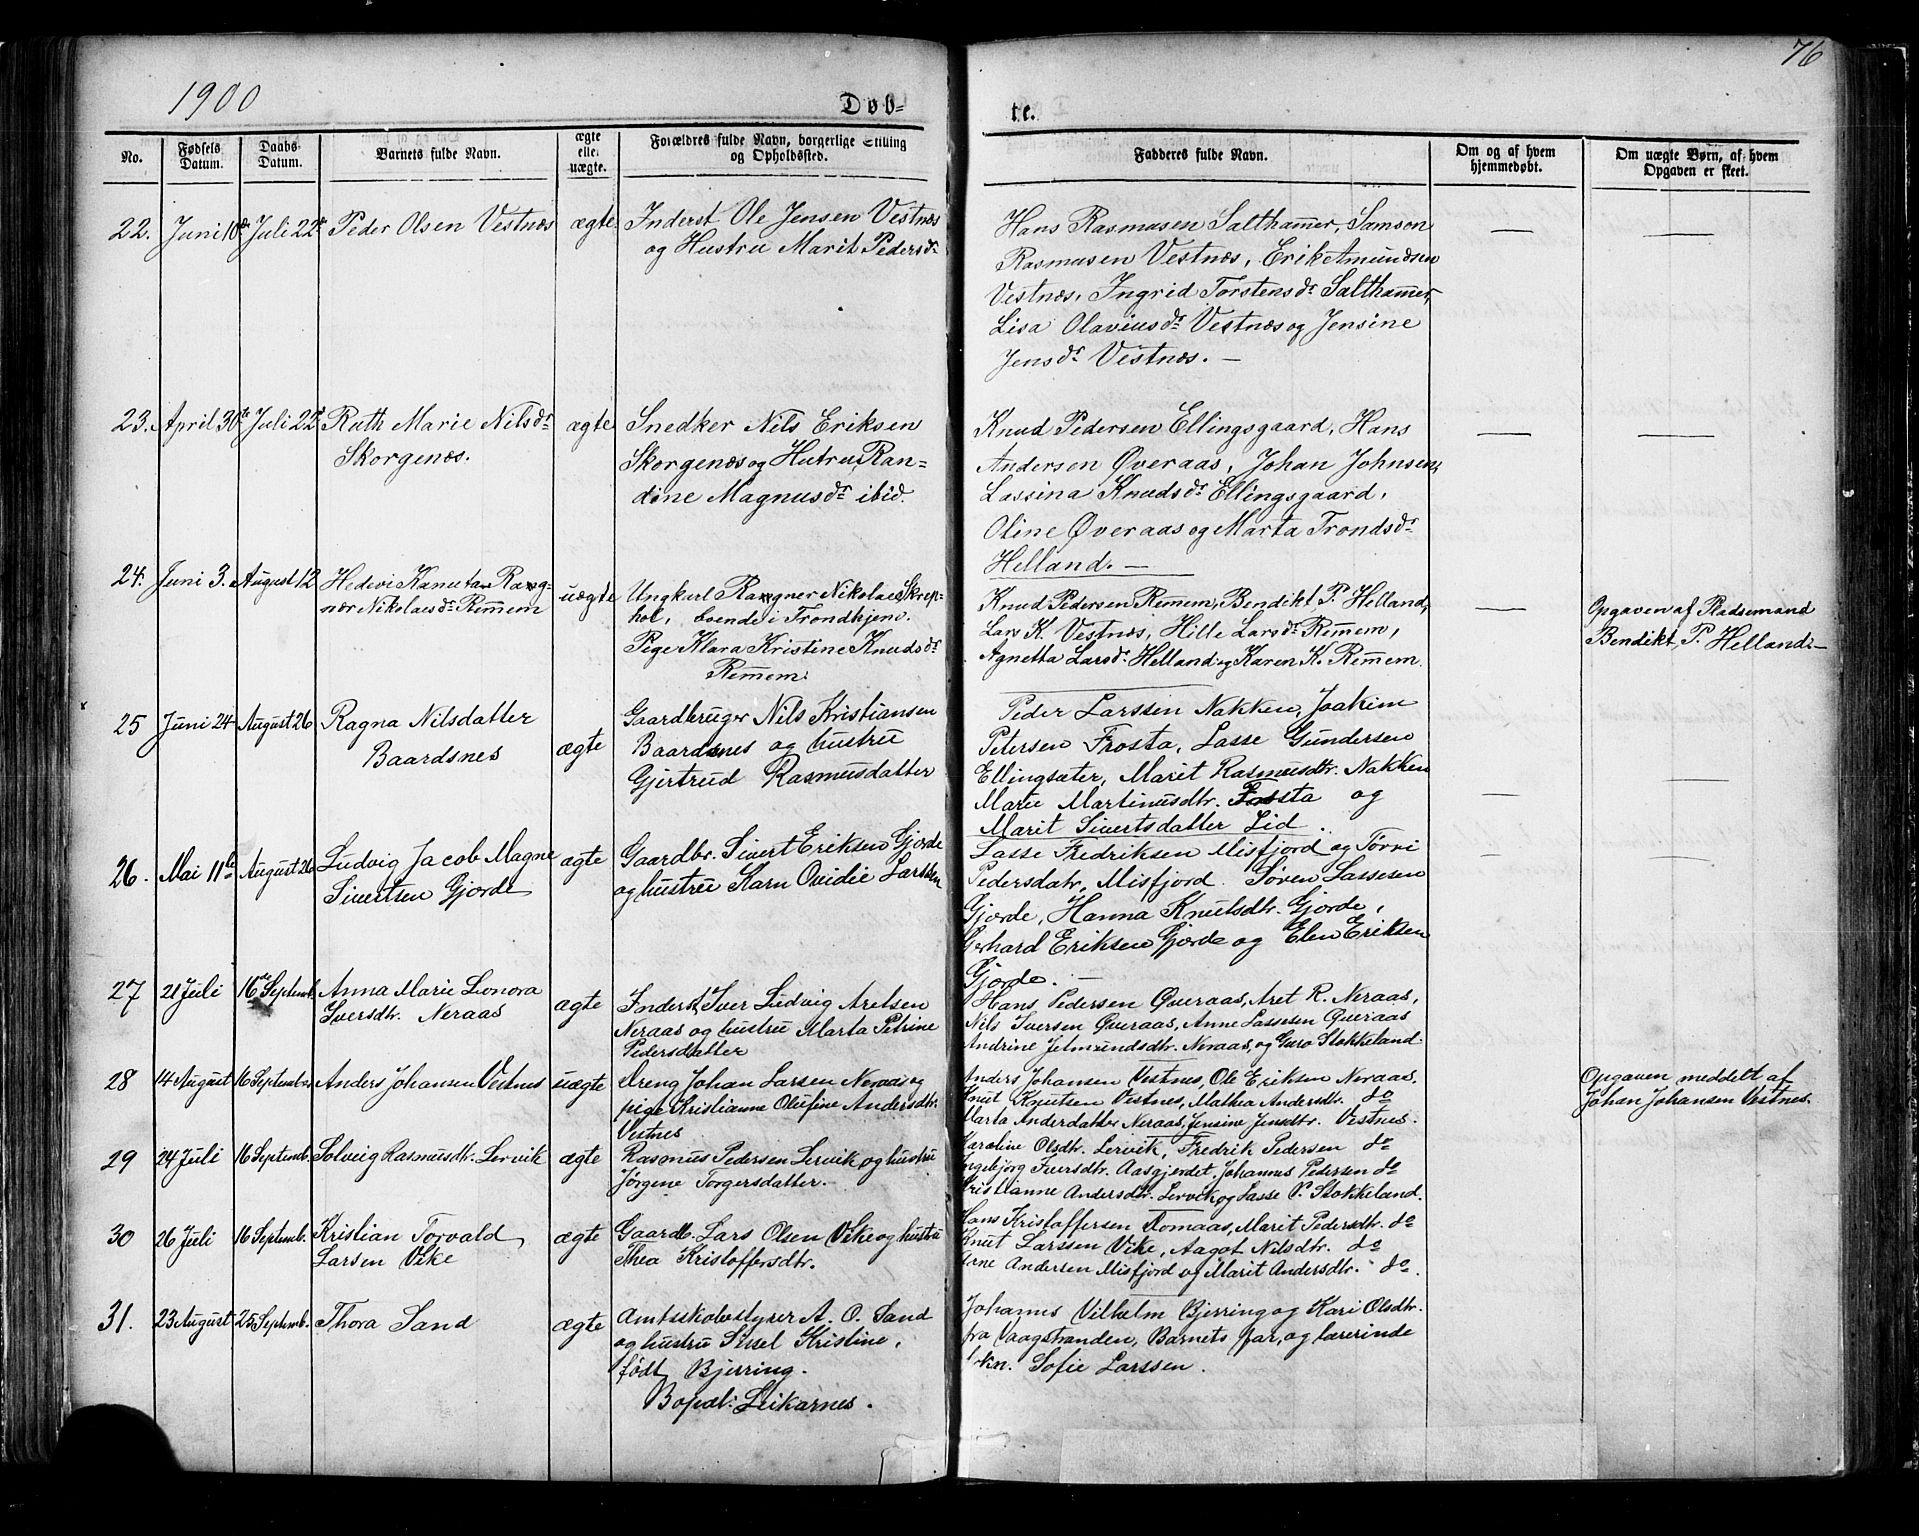 76
1900
Døb-
te.
No.
Fødsels Datum.
Daabs Datum.
Barnets fulde Navn.
ægte elle. uægte.
Forældres fulde Navn, borgerlige Stilling og Opholdsted.
Fadderes fulde Navn.
Om og af hvem hjemmedøbt.
Om uægte Børn, af hvem Opgaven er skeet.
22. Juni 10de Juli 22de Peder Olsen Vestnæs ægte Inderst Ole Jensen Vestnæs
og Hustru Marit Pedersdr
Hans Rasmusen Salthamer, Samson
Rasmusen Vestnæs, Erik Amundsen
Vestnæs, Ingrid Torstensdr Salthamer,
Lisa Olaviusdr Vestnæs og Jensine
Jensdr Vestnæs. —
23. April 30te Juli 22d Ruth Marie Nilsdr ægte Snedker Nils Eriksen
Skorgenæs. Skorgenæs og Hutru Ran=
dine Magnusdr ibid.
Knud Pedersen Ellingsgaard, Hans
Andersen Øveraas, Johan Johnsen,
Lassina Knudsdr Ellingsgaard,
Oline Øveraas og Marta Trondsdr
Helland. —
24. Juni 3. August 12 Hedevi Kanuta Rang-
nær Nikolaisdr Remem uægte Ungkarl Ragner Nikolai Skrep-
hol, boende i Trondhjem.
Pige Klara Kristine Knudsdr
Remem.
Knud Pedersen Remem, Bendikt P. Helland,
Lars K. Vestnæs, Hille Larsdr Remem,
Agnetta Larsdr Helland og Karen K. Remem.
Opgaven af Pladsemand
Bendikt P. Helland.—
25 Juni 24 August 26 Ragna Nilsdatter
Baardsnes ægte
Gaardbruger Nils Kristiansen
Baardsnes og hustru
Gjertrud Rasmusdatter
Peder Larssen Nakken, Joakim
Petersen Frosta, Lasse Gundersen
Ellingsæter, Marit Rasmusdtr. Nakken
Marie Martinusdtr. Frosta og
Marit Sivertsdatter Lid
26. Mai 11te August 26 Ludvig Jacob Magne
Sivertsen Gjørde ægte Gaardbr. Sivert Eriksen Gjørde
og hustru Karn Ovidie Larssen
Lasse Fredriksen Misfjord og Tørri
Pedersdatr, Misfjord. Søren Lassesen
Gjørde, Hanna Knutsdtr. Gjørde,
Gerhard Eriksen Gjørde og Elen Eriksen
Gjørde. —
27 21 Juli 16de Septemb. Anna Marie Lonora
Iversdtr. Neraas ægte Inderst, Iver Ludvig Aretsen
Neraas og hustru Marta Petrine
Pedersdatter
Hans Pedersen Øveraas, Aret R. Neraas,
Nils Iversen Øveraas, Anne Lassesen Øveraas
Andrine Jetmundsdtr. Neraas, og Guro Stokkeland.
28 14 August 16 September Anders Johansen Vestnes uægte Dreng Johan Larsen Neraas og
pige Kristianne Olufine Andersdtr.
Vestnes
Anders Johansen Vestnes, Ole Eriksen Neraas,
Knut Knutsen Vestnes, Mathea Andersdtr. do
Marta Anderdatter Neraas, Jensine Jensdtr. Vestnes.
Opgaven meddelt af
Johan Johansen Vestnes.
29 24 Juli 16 Septemb. Solveig Rasmusdtr. Lervik ægte Rasmus Pedersen Lervik og hustru
Jørgene Torgersdatter.
Karoline Olsdtr. Lervik, Fredrik Pedersen do
Ingebjørg Iversdtr. Aasgjerdet, Johannes Pedersen do
Kristianne Andersdtr. Lervik og Lasse P. Stokkeland.
30 26 Juli 16 Septemb. Kristian Torvald
Larsen Vike ægte Gaardb. Lars Olsen Vike og hustru
Thea Kristoffersdtr.
Hans Kristoffersen Romaas, Marit Pedersdtr. do
Knut Larssen Vike, Aagot Nilsdtr. do
Arne Andersen Misfjord og Marit Andersdtr. do.
31. 23 August 25 Septemb. Thora Sand ægte Amtsskolestyrer A. O. Sand
og hustru Sissel Kristine,
født Bjerring.
Bopæl: Leikarnes.
Johannes Vilhelm Bjerring og Kari Olsdtr.
fra Vaagstranden, Barnets far, og lærerinde
Sofie Larssen.